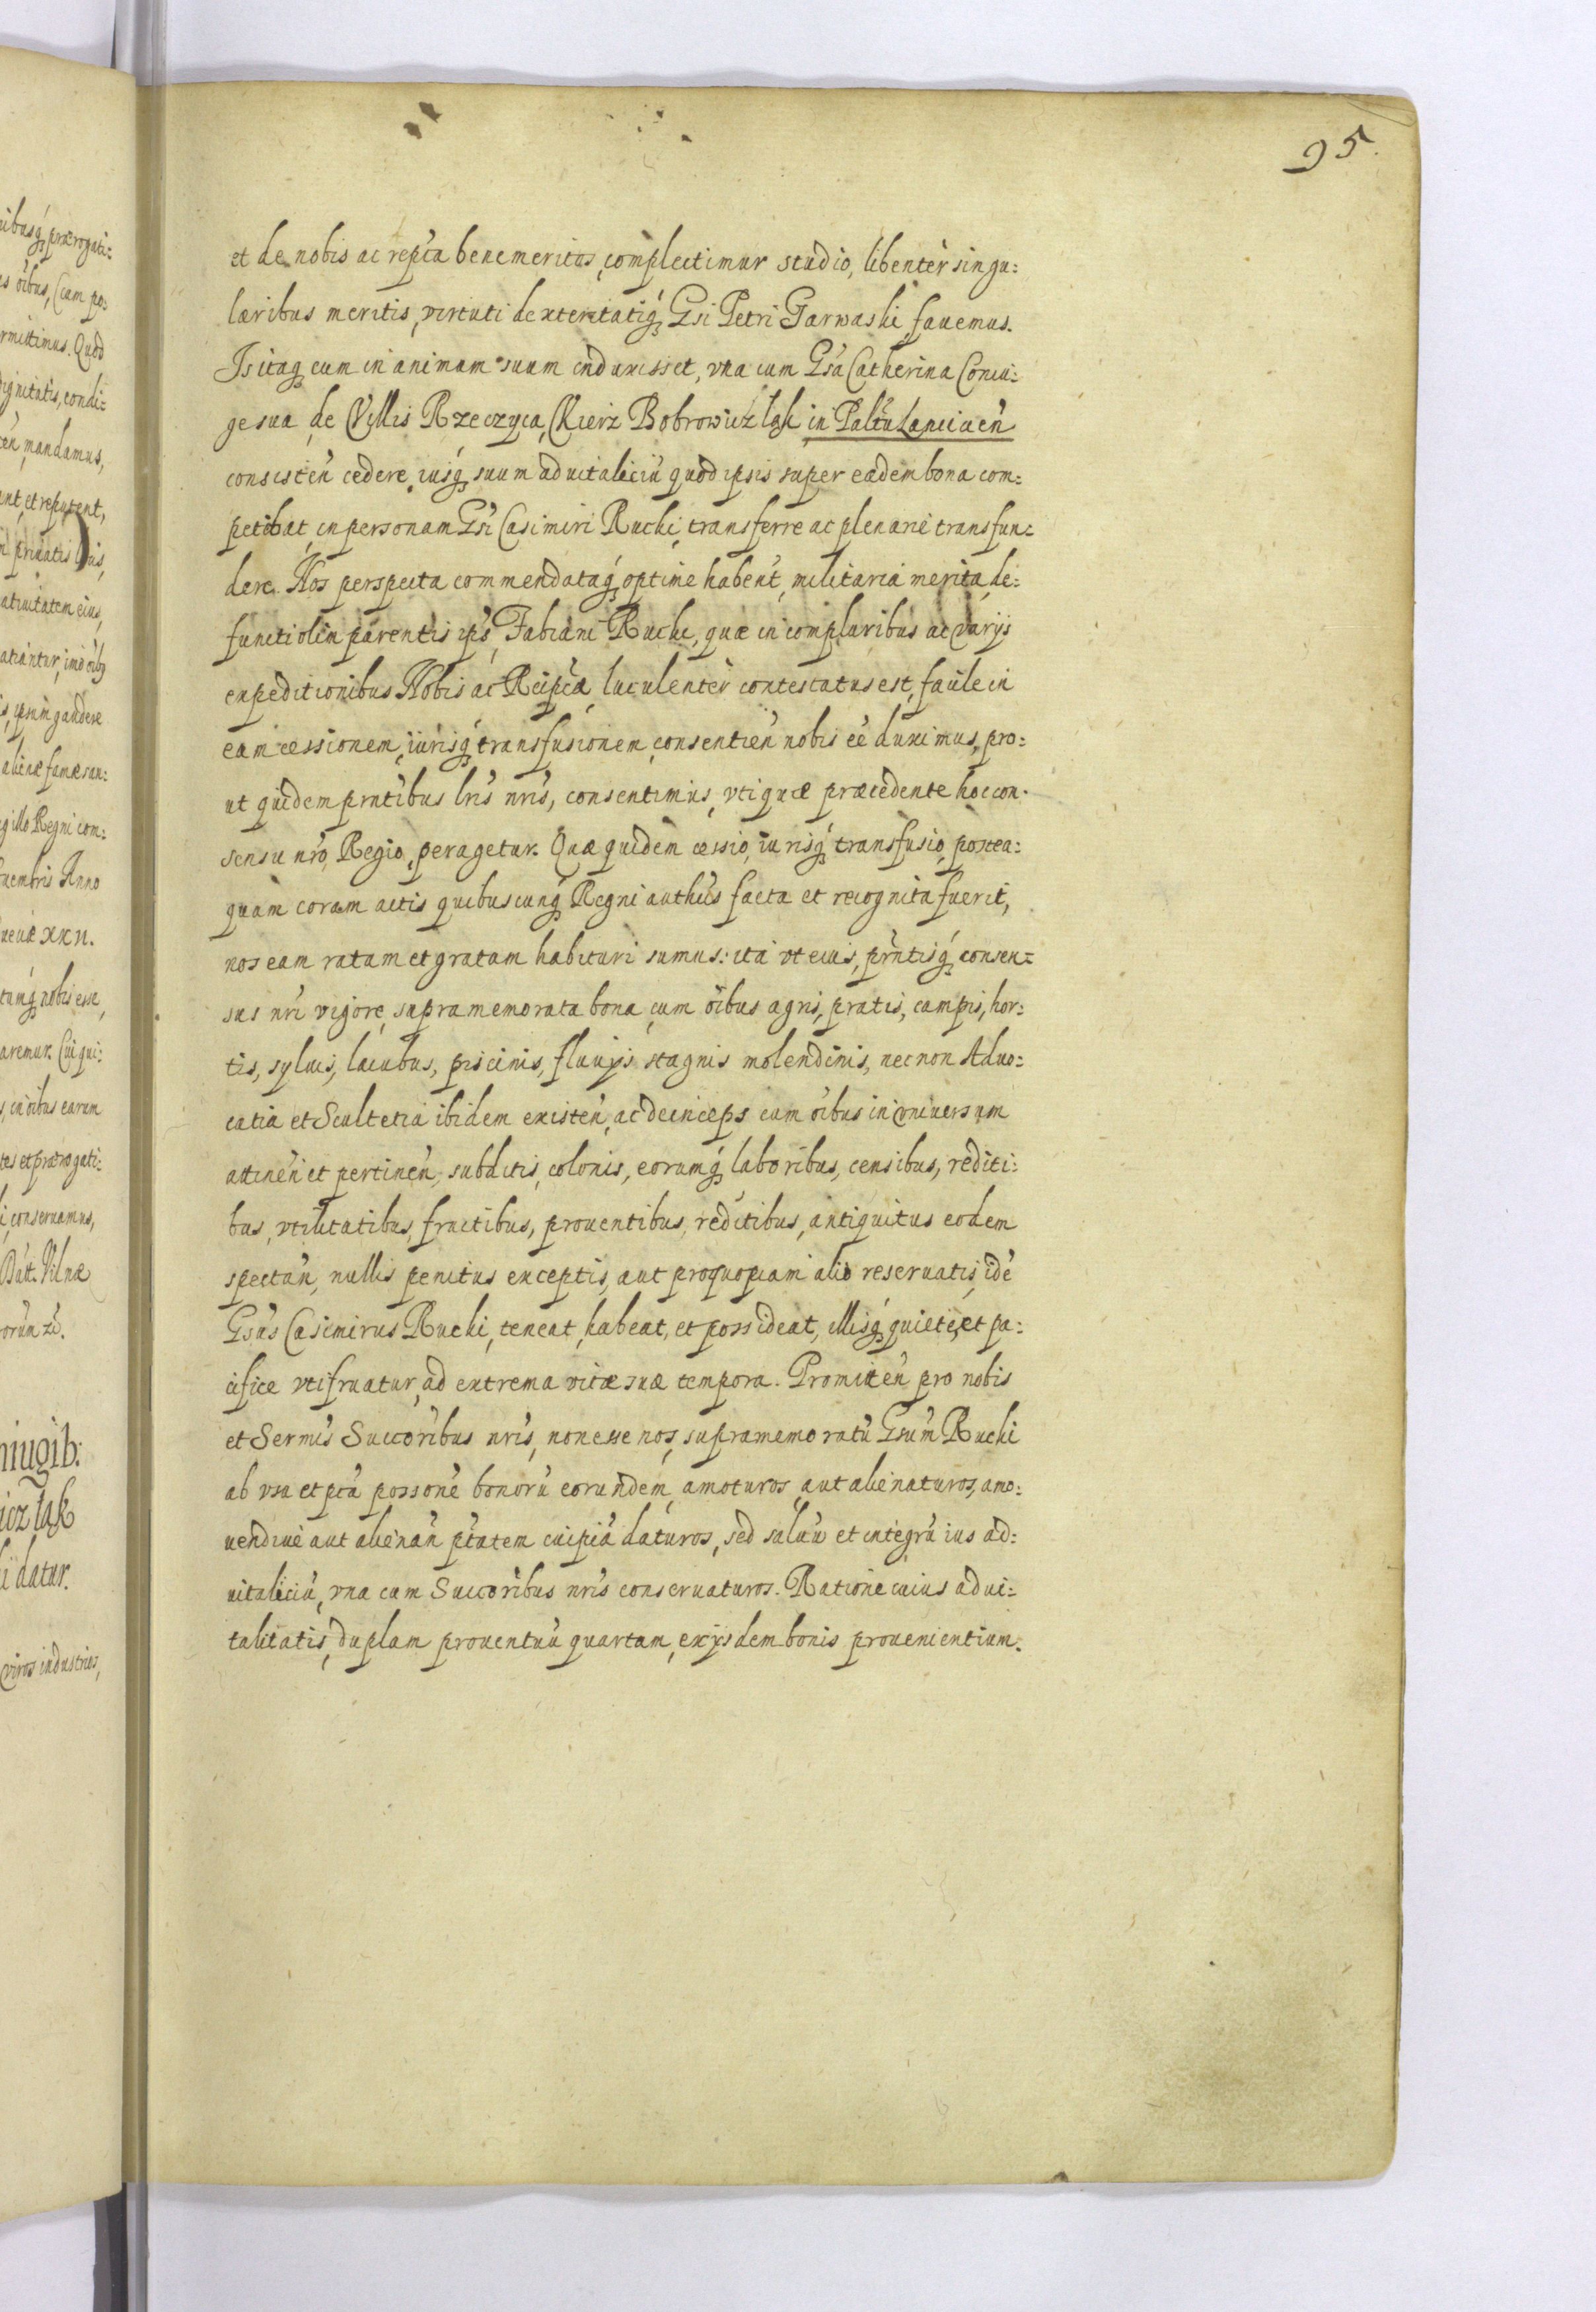 95.
et de nobis ac repca benemeritos, complectimur studio, libenter singu:
laribus meritis, virtuti dexteritatiq Gsi Petri Garwaski favemus.
Is itaq cum in animam suum induxisset, vna cum Gsa Catherina Coniu:
ge sua, de Villis Rzeczyca, Kierz Bobrowicz lask in Paltu Lanciacen
consisten cedere, iusq suum aduitaliciu quod ipsis super eadem bona com:
petibat, in personam Gsi Casimiri Rucki, transferre ac plenarie transfun:
dere. Nos perspecta commendataq optime habent, militaria merita, de:
functi olim parentis ips, Fabiani Rucki, quæ in compluribus ac varijs
expeditionibus Nobis ac Reipcæ luculenter contestatus est, facile in
eam cessionem, iurisq transfusionem, consentien nobis ee duximus, pro:
ut quidem prntibus lris nris, consentimus, vti quæ præcedente hoc con:
sensu nro Regio, peragetur. Quæ quidem cessio, iurisq transfusio, postea:
quam coram actis quibuscunq Regni authcis facta et recognita fuerit,
nos eam ratam et gratam habituri sumus: ita vt eius, prntisq consen:
sus nri vigore, supramemorata bona, cum oibus agris, pratis, campis, hor:
tis, syluis, lacubus, piscinis, fluuijs stagnis molendinis, nec non Aduo:
catia et Scultetia ibidem existen, ac deinceps cum oibus in vniuersum
attinen et pertinen, subditis, colonis, eorumq laboribus, censibus, rediti:
bus, vtilitatibus, fructibus, prouentibus, reditibus, antiquitus eodem
spectan, nullis penitus exceptis, aut pro quopiam alio reseruatis, ide
Gsus Casimirus Rucki, teneat, habeat, et possideat, illisq quiete, et pa:
cifice vtifruatur, ad extrema vitæ suæ tempora. Promitten pro nobis
et Sermis Succoribus nris, non esse nos, supramemoratu Gsum Rucki
ab vsu et pca possone bonoru eorundem, amoturos, aut alienaturos, amo:
uendiue aut alienan ptatem cuipia daturos, sed saluu et integru ius ad:
uitaliciu, vna cum Succoribus nris conseruaturos. Ratione cuius adui:
talitatis, duplam prouentuu quartam, ex ijsdem bonis prouenientium.